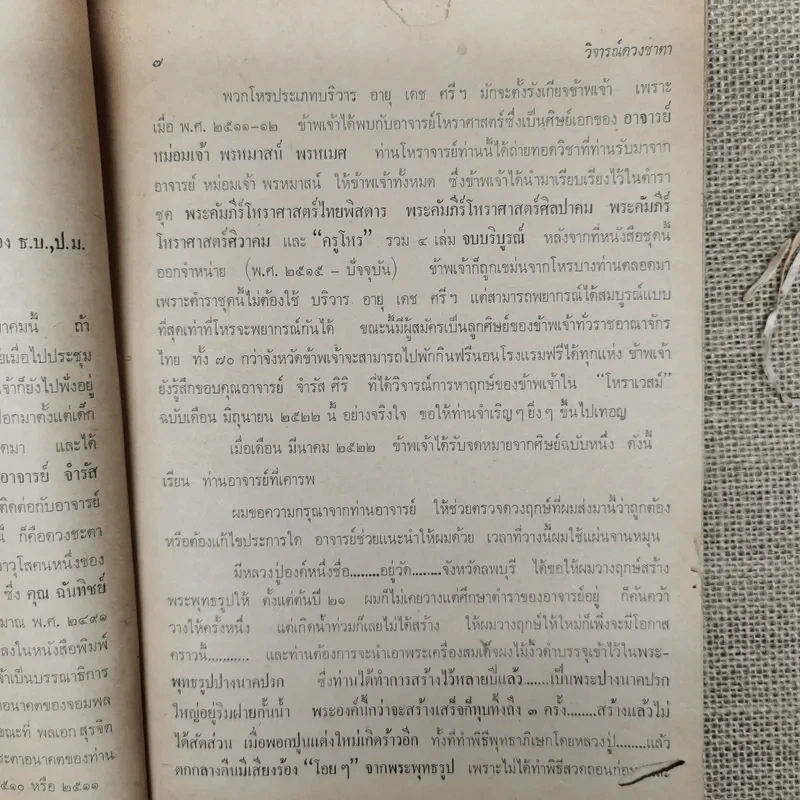 อง ธ.บ.,ป.ม.
าคมนี้ ถ้า
ยเมื่อไปประชุม
เจ้าก็ยังไปฟังอยู่
ปอกมาตั้งแต่เด็ก
ดมา และได้
อาจารย์ จำรัส
ติดต่อกับอาจารย์
นี้ ก็คือดวงชะตา
าวุโสคนหนึ่งของ
ซึ่ง คุณ ฉันทิชย์
มาณ พ.ศ. ๒๔๙๑
ลงในหนังสือพิมพ์
จ้าเป็นบรรณาธิการ
าอนาคตของจอมพล
ขณะที่ พลเอก สุรจิต
ะตาอนาคตของท่าน
๕๑๐ หรือ ๒๕๑๑
๗ วิจารณ์ดวงชาตา
พวกโหรประเภทบริวาร อายุ เดช ศรีฯ มักจะตั้งรังเกียจข้าพเจ้า เพราะ
เมื่อ พ.ศ. ๒๕๑๑-๑๒ ข้าพเจ้าได้พบกับอาจารย์โหราศาสตร์ซึ่งเป็นศิษย์เอกของ อาจารย์
หม่อมเจ้า พรหมาสน์ พรหเมศ ท่านโหราจารย์ท่านนี้ได้ถ่ายทอดวิชาที่ท่านรับมาจาก
อาจารย์ หม่อมเจ้า พรหมาสน์ ให้ข้าพเจ้าทั้งหมด ซึ่งข้าพเจ้าได้นำมาเรียบเรียงไว้ในตำรา
ชุด พระคัมภีร์โหราศาสตร์ไทยพิสดาร พระคัมภีร์โหราศาสตร์ศิลปาคม พระคัมภีร์
โหราศาสตร์ศิวาคม และ “ครูโหร” รวม ๔ เล่ม จบบริบูรณ์ หลังจากที่หนังสือชุดนี้
ออกจำหน่าย (พ.ศ. ๒๕๑๕ - ปัจจุบัน) ข้าพเจ้าก็ถูกเขม่นจากโหรบางท่านตลอดมา
เพราะตำราชุดนี้ไม่ต้องใช้ บริวาร อายุ เดช ศรีฯ แต่สามารถพยากรณ์ได้สมบูรณ์แบบ
ที่สุดเท่าที่โหรจะพยากรณ์กันได้ ขณะนี้มีผู้สมัครเป็นลูกศิษย์ของข้าพเจ้าทั่วราชอาณาจักร
ไทย ทั้ง ๗๐ กว่าจังหวัดข้าพเจ้าจะสามารถไปพักกินฟรีนอนโรงแรมฟรีได้ทุกแห่ง ข้าพเจ้า
ยังรู้สึกขอบคุณอาจารย์ จำรัส ศิริ ที่ได้วิจารณ์การหาฤกษ์ของข้าพเจ้าใน “โหราเวสม์”
ฉบับเดือน มิถุนายน ๒๕๒๒ นี้ อย่างจริงใจ ขอให้ท่านจำเริญๆ ยิ่งๆ ขึ้นไปเทอญ
เมื่อเดือน มีนาคม ๒๕๒๒ ข้าพเจ้าได้รับจดหมายจากศิษย์ฉบับหนึ่ง ดังนี้
เรียน ท่านอาจารย์ที่เคารพ
ผมขอความกรุณาจากท่านอาจารย์ ให้ช่วยตรวจดวงฤกษ์ที่ผมส่งมานี้ว่าถูกต้อง
หรือต้องแก้ไขประการใด อาจารย์ช่วยแนะนำให้ผมด้วย เวลาที่วางนี้ผมใช้แผ่นจานหมุน
มีหลวงปู่องค์หนึ่งชื่อ........อยู่วัด........จังหวัดลพบุรี ได้ขอให้ผมวางฤกษ์สร้าง
พระพุทธรูปให้ ตั้งแต่ต้นปี ๒๑ ผมก็ไม่เคยวางแต่ศึกษาตำราของอาจารย์อยู่ ก็ค้นคว้า
วางให้ครั้งหนึ่ง แต่เกิดน้ำท่วมก็เลยไม่ได้สร้าง ให้ผมวางฤกษ์ให้ใหม่ก็เพิ่งจะมีโอกาส
คราวนี้........... และท่านต้องการจะนำเอาพระเครื่องสมเด็จผงไม้งิ้วดำบรรจุเข้าไว้ในพระ-
พุทธรูปปางนาคปรก ซึ่งท่านได้ทำการสร้างไว้หลายปีแล้ว.......เป็นพระปางนาคปรก
ใหญ่อยู่ริมฝายกั้นน้ำ พระองค์นี้กว่าจะสร้างเสร็จก็ทุบทิ้งถึง ๓ ครั้ง........สร้างแล้วไม่
ได้สัดส่วน เมื่อพอกปูนแต่งใหม่เกิดร้าวอีก ทั้งที่ทำพิธีพุทธาภิเษกโดยหลวงปู่........แล้ว
ตกกลางคืนมีเสียงร้อง “โอยๆ” จากพระพุทธรูป เพราะไม่ได้ทำพิธีสวดถอนก่อน